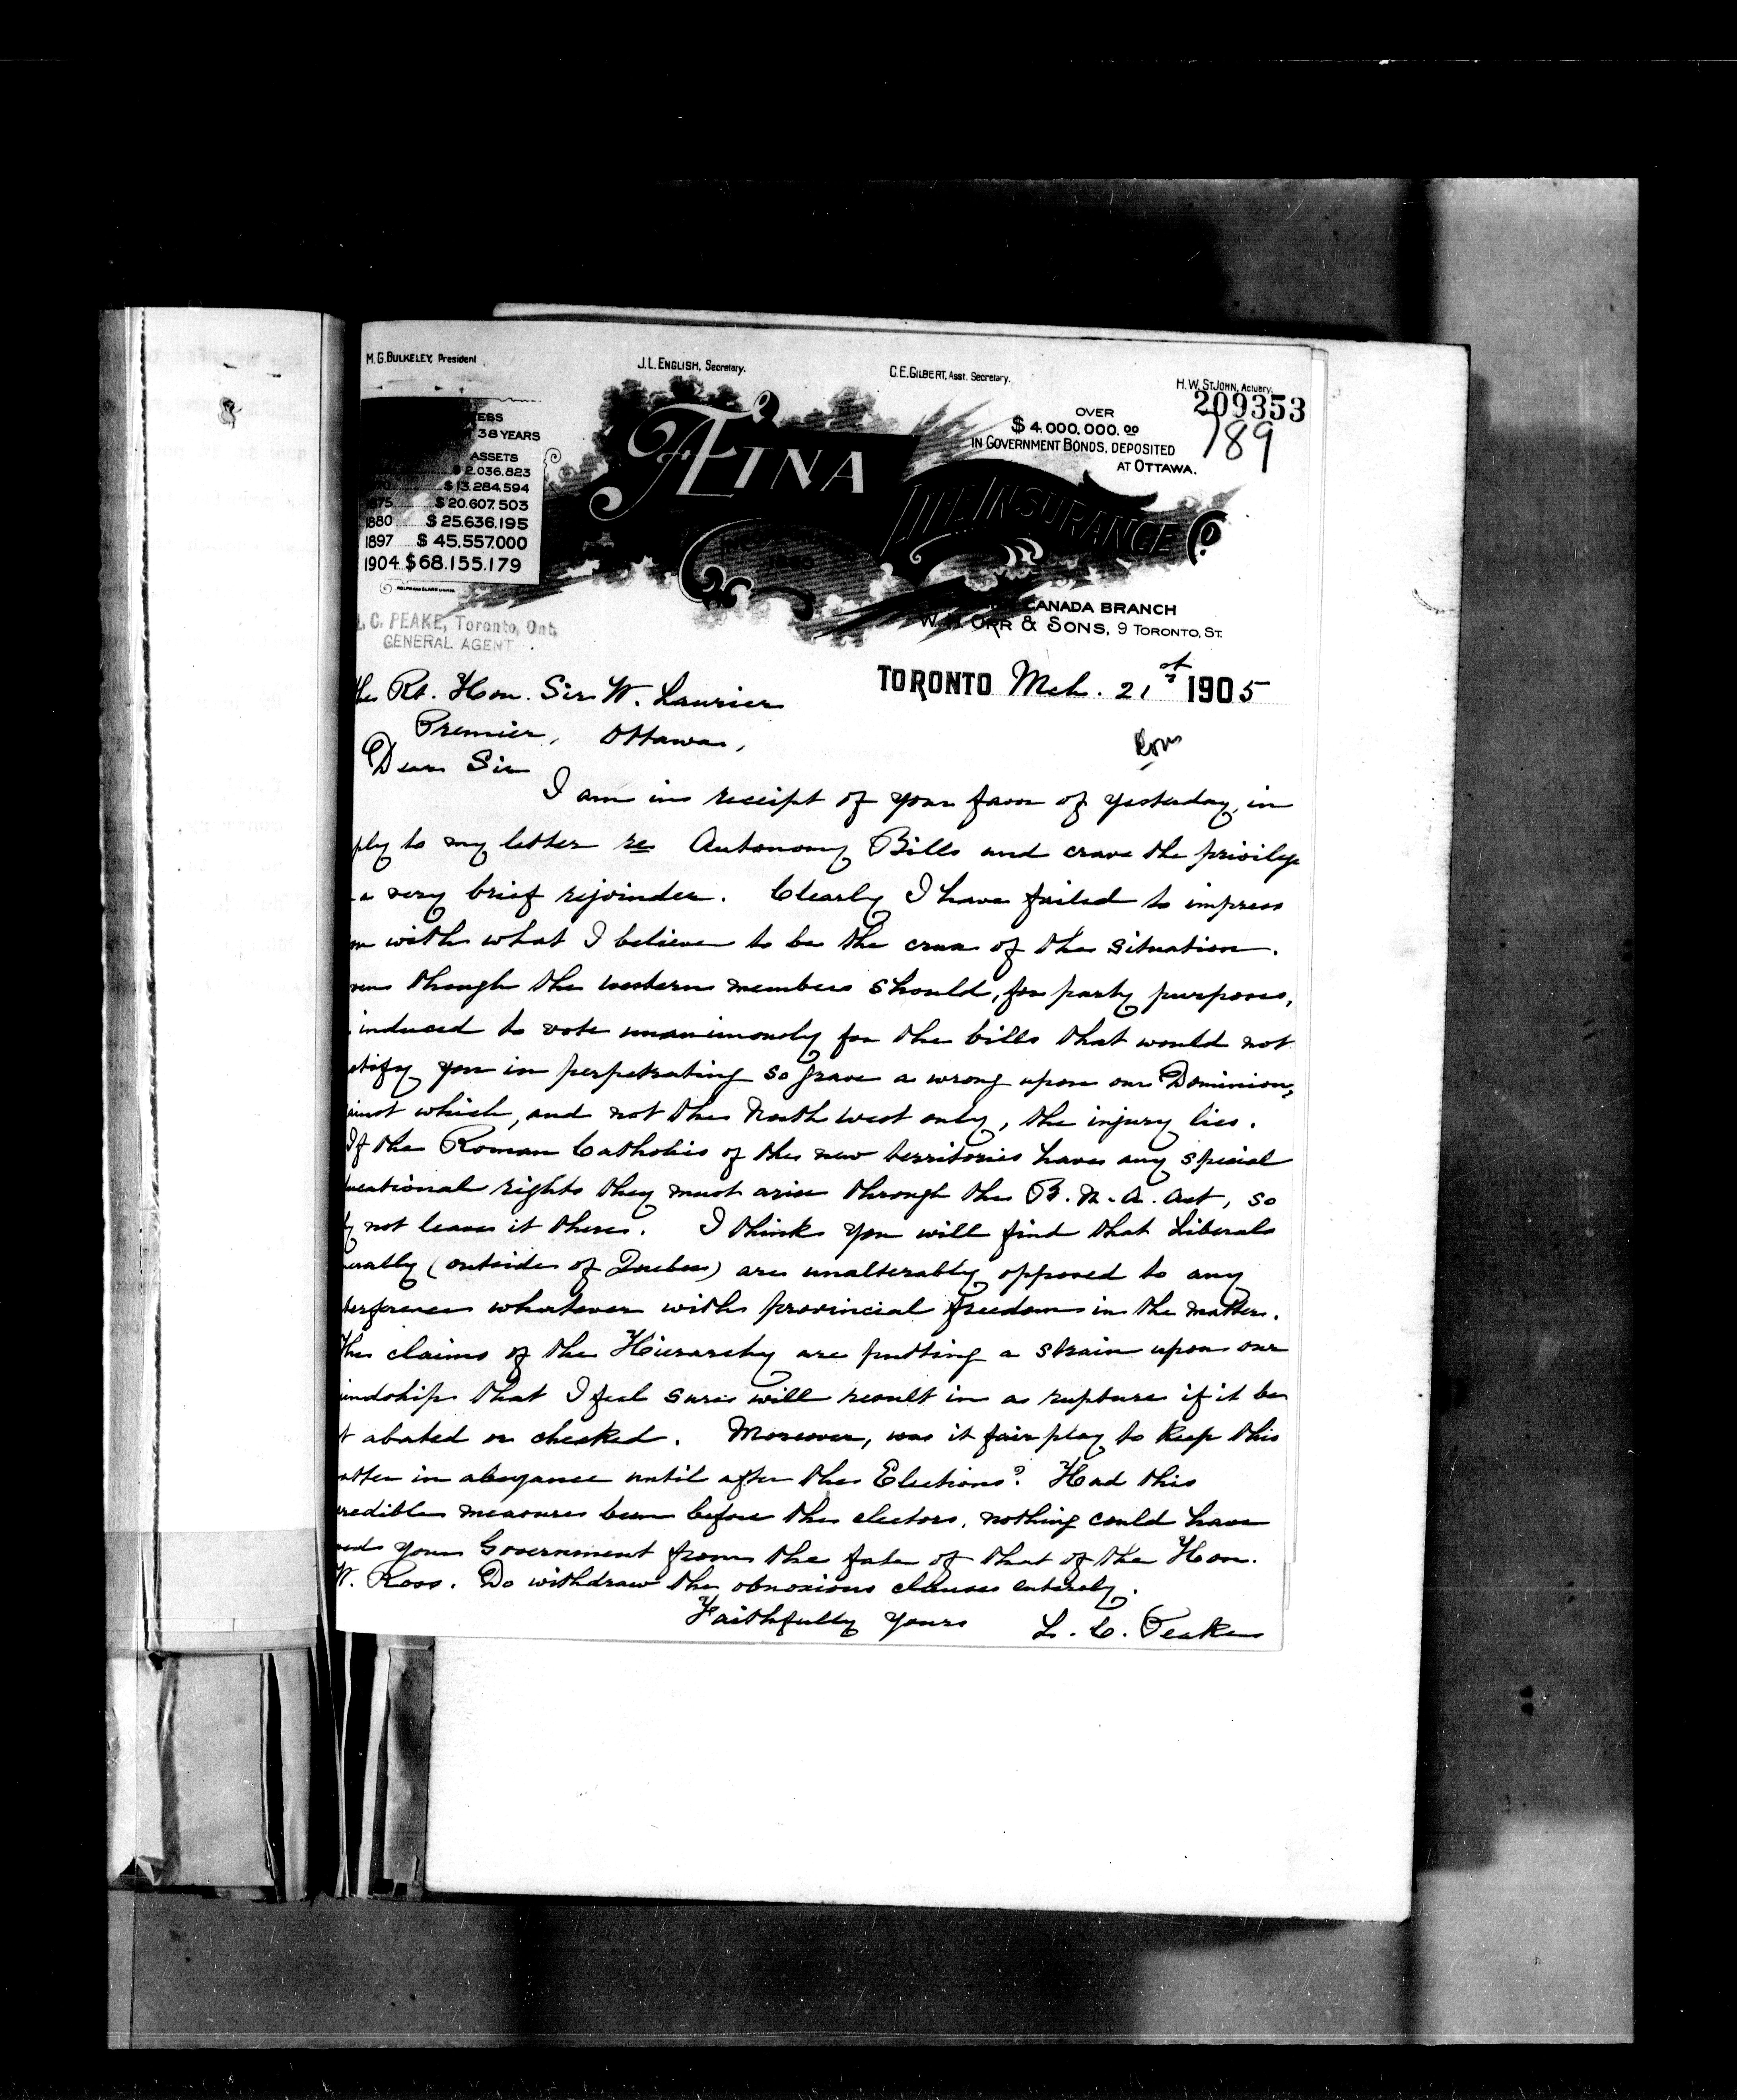 M.G. BULKELEY, President
J.L. ENGLISH, Secretary.
C.E. GILBERT, Asst. Secretary.
H.W. ST JOHN, Actuary.
209353
789
ESS
38 YEARS
ASSETS
$2.036.823
$13.284.594
875 $20.607.503
1880 $25.636.195
1897 $45.557.000
1904 $68.155.179
ÆTNA
LIFE INSURANCE Co
OVER
$4.000.000.00
IN GOVERNMENT BONDS, DEPOSITED
AT OTTAWA.
CANADA BRANCH
W. H. ORR & SONS, 9 TORONTO, ST.
. C. PEAKE, Toronto, Ont.
GENERAL AGENT.
TORONTO Mch. 21st 1905
the Rt. Hon. Sir W. Laurier
Premier, Ottawa,
Dear Sir
I am in receipt of your favor of yesterday, in
ply to my letter re Autonomy Bills and crave the privilege
a very brief rejoinder. Clearly I have failed to impress
with what I believe to be the crux of the situation.
ven though the western members should, for party purposes,
induced to vote unanimously for the bills that would not
stify you in perpetrating so grave a wrong upon our Dominion,
ainst which, and not the North west only, the injury lies.
If the Roman Catholics of the new territories have any special
ucational rights they must arise through the B. N. A. Act, so
y not leave it there. I think you will find that Liberals
erally (outside of Quebec) are unalterably opposed to any
terference whatever with provincial freedom in the matter.
The claims of the Hierarchy are putting a strain upon our
iendship that I feel sure will result in a rupture if it be
t abated or checked. Moreover, was it fair play to keep this
atter in abeyance until after the Elections? Had this
credible measure been before the electors, nothing could have
ved your Government from the fate of that of the Hon.
W. Ross. Do withdraw the obnoxious clauses entirely.
Faithfully yours L. C. Peake